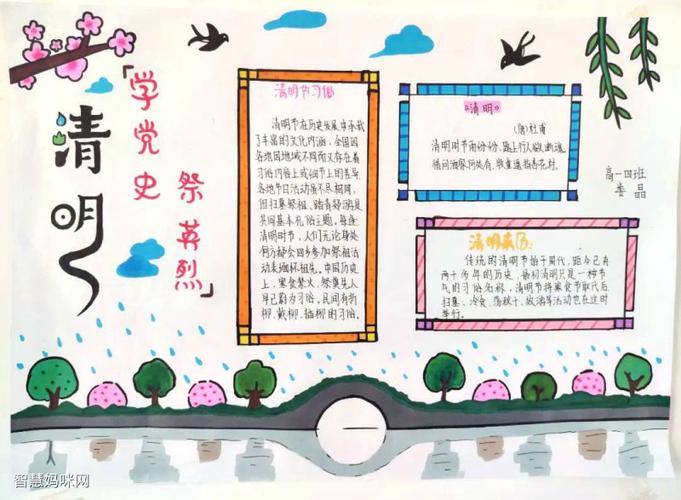 清明
「学党史
祭英烈」
清明节习俗
清明节在历史发展中承载
了丰富的文化内涵,全国因
各地因地域不同而又存在着
习俗内容上或细节上的差异
各地节日活动虽不尽相同,
但扫墓祭祖、踏青郊游是
共同基本礼俗主题,每逢
清明时节,人们无论身处
何方都会回乡参加祭祖活
动表缅怀祖先。中国历史
上,寒食禁火,祭奠先人
早已蔚为习俗。民间有折
柳、戴柳、插柳的习俗。
《清明》
(唐)杜甫
清明时节雨纷纷,路上行人欲断魂
借问酒家何处有,牧童遥指杏花村.
高一四班
李晶
清明来历:
传统的清明节始于周代,距今已有
两千多年的历史,最初清明只是一种节
气的习俗名称,清明节将寒食节取代后
扫墓、冷食、荡秋千、等活动也在这时
举行。
智慧妈咪网